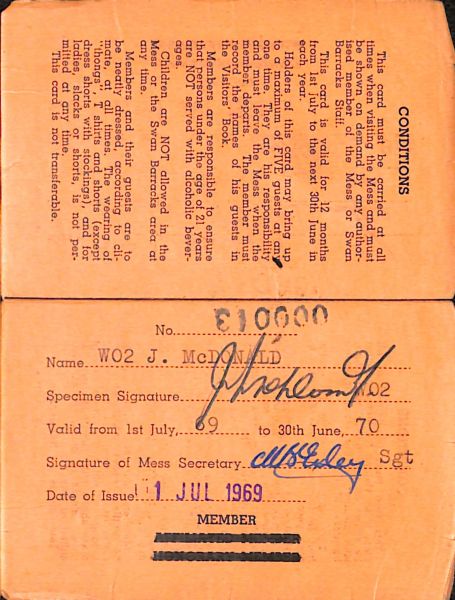 CONDITIONS
This card must be carried at all
times when visiting the Mess and must
be shown on demand by any author-
ised member of the Mess or Swan
Barracks Staff.
This card is valid for 12 months
from 1st July to the next 30th June in
each year.
Holders of this card may bring up
to a maximum of FIVE guests at any
one time. They are his responsibility
and must leave the Mess when the
member departs. The member must
record the names of his guests in
the Visitors' Book.
Members are responsible to ensure
that persons under the age of 21 years
are NOT served with alcoholic bever-
ages.
Children are NOT allowed in the
Mess or the Swan Barracks area at
any time.
Members and their guests are to
be neatly dressed, according to cli-
mate, at all times. The wearing of
"thongs", T shirts and shorts (except
dress shorts with stockings), and for
ladies, slacks or shorts, is not per-
mitted at any time.
This card is not transferable.
No. 000013
Name WO2 J. McDONALD
Specimen Signature WO2
Valid from 1st July, 69 to 30th June, 70
Signature of Mess Secretary Sgt
Date of Issue 1 JUL 1969
MEMBER
HONORARY MEMBER